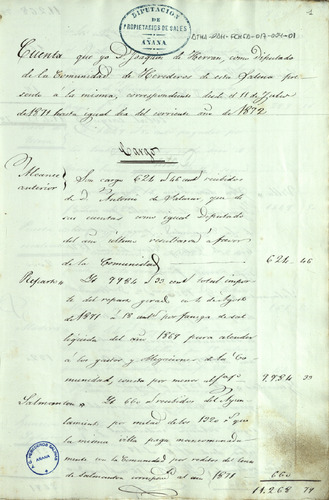 DIPUTACION
DE
PROPIETARIOS DE SALES
AÑANA
1
Cuenta que yo D. Joaquin de Herran, como Diputado
de la Comunidad de Herederos de esta Salina pre-
sento a la misma, correspondiente desde el 11 de
de 1871 hasta igual dia del corriente año de 1872
Cargo
Alcance
anterior
Son cargo 624 46 recibidos
de D. Antonio de que de
sus cuentas como igual Diputado
del año ultimo resultaron a favor
de la Comunidad 624 46
Reparto
Yd 9984 33 total impor-
te del reparto girado en de Agosto
de 1871 a 18 por fanega de sal
del año 1869 para atender
a los gastos y obligaciones de la Co-
munidad, consta por menor 9.984 33
Salmanton
Yd 660 recibidos del Ayun-
tamiento por mitad de los 1320 que
la misma villa paga mancomunadamente
con la Comunidad por reditos del censo
de Salmanton al año 1871 660
11.268 79
AÑANA